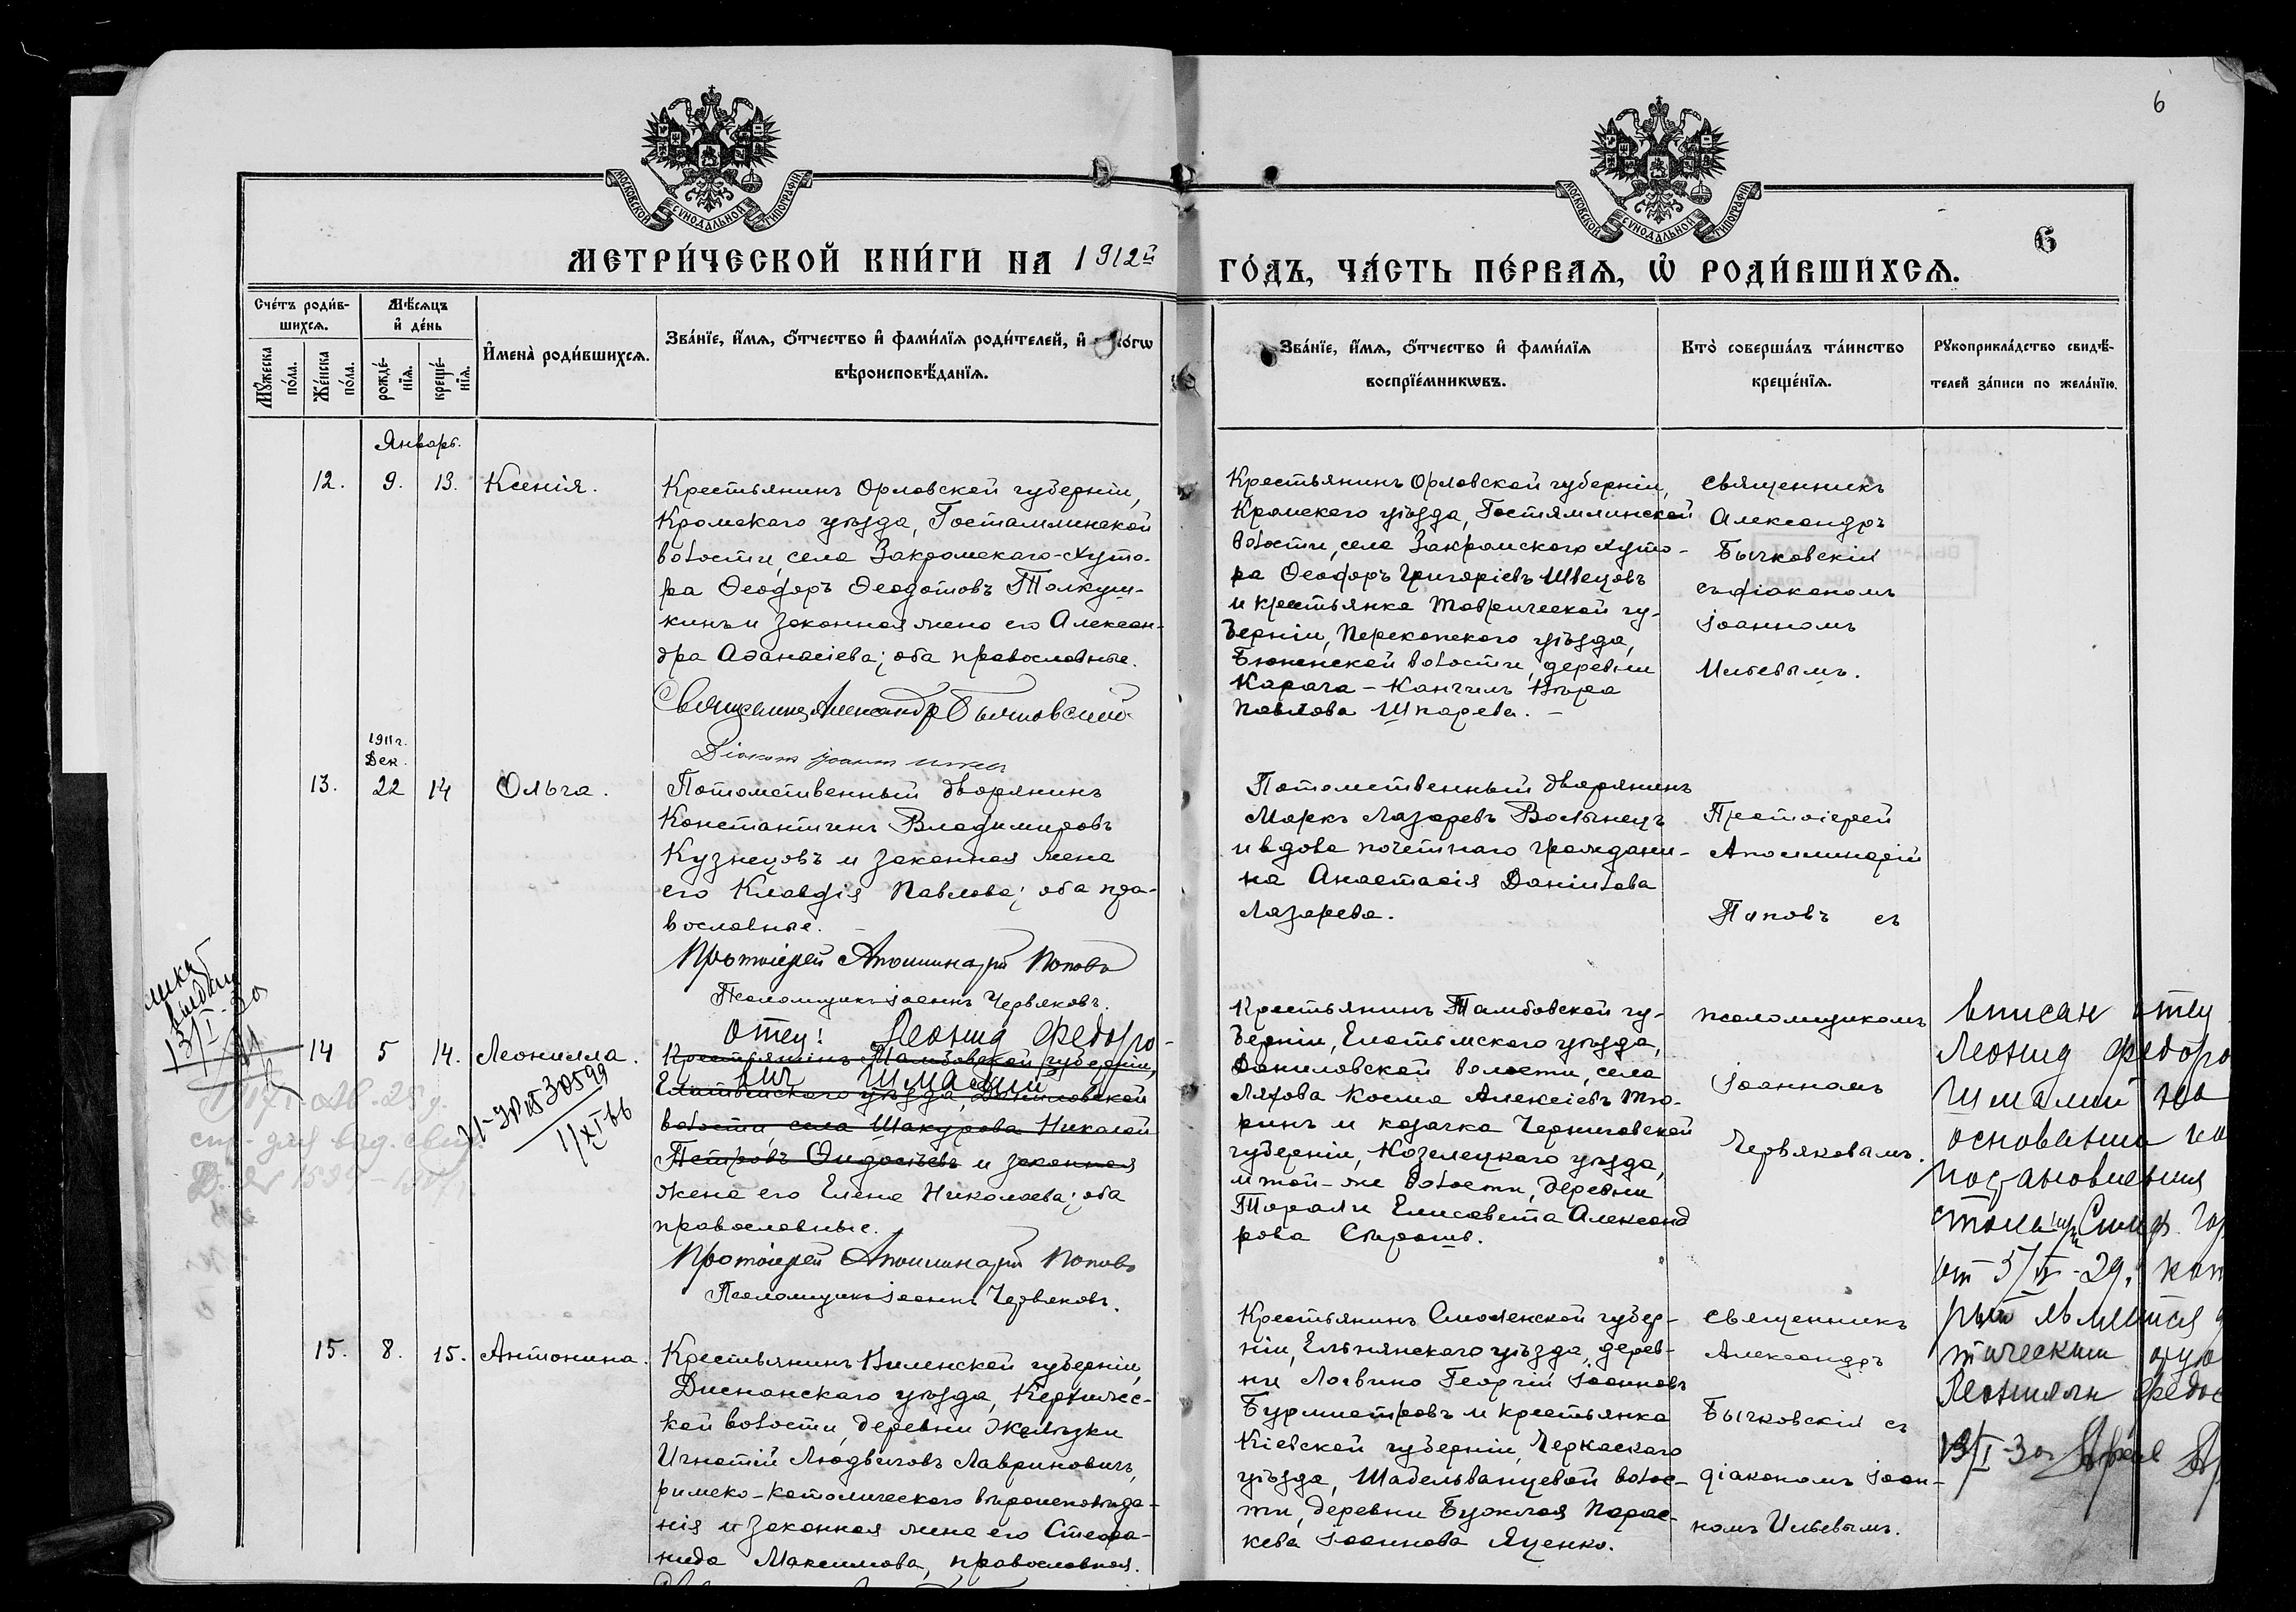 6
МОСКОВСКОЙ СѴНОДАЛЬНОЙ ТИПОГРАФІИ
МОСКОВСКОЙ СѴНОДАЛЬНОЙ ТИПОГРАФІИ
6
МЕТРИ́ЧЕСКОЙ КНИ́ГИ НА 1912й
ГО́ДЪ, ЧА́СТЬ ПЕ́РВАѦ, Ѡ҆ РОДИ́ВШИХСѦ.
Сче́тъ роди́в-
шихсѧ.
Мѣ́сѧцъ
и҆ де́нь
Мꙋ́жеска
по́ла.
Же́нска
по́ла.
рожде́-
нїѧ.
креще́-
нїѧ.
И҆мена̀ роди́вшихсѧ.
Зва́нїе, и҆́мѧ, ѻ҆́тчество и҆ фами́лїѧ роди́телей, и҆
вѣроисповѣ́данїѧ.
Зва́нїе, и҆́мѧ, ѻ҆́тчество и҆ фами́лїѧ
воспрїе́мникѡвъ.
Кто̀ соверша́лъ та́инство
креще́нїѧ.
Рꙋкоприкла́дство свидѣ́-
телей за́писи по жела́нїю.
Январь.
12.
9.
13.
Ксенія.
Крестьянинъ Орловской губерніи,
Кромскаго уѣзда, Гостамлинской
волости, села Закромскаго-Хуто-
ра Ѳеодоръ Ѳеодотовъ Толкуш-
кинъ и законная жена его Алексан-
дра Аѳанасіева; оба православные.
Священникъ Александръ Бычковскій
Діаконъ Іоаннъ
Крестьянинъ Орловской губерніи,
Кромскаго уѣзда, Гостямлинской
волости, села Закромского Хуто-
ра Ѳеодоръ Григоріевъ Швецовъ
и крестьянка Таврической гу-
берніи, Перекопскаго уѣзда,
волости, деревни
Карача-Кангилъ Вѣра
Павлова Шпарева. —
священникъ
Александръ
Бычковскій
съ діакономъ
Іоанномъ
Ильевымъ.
1911 г.
Дек.
13.
22
14
Ольга.
Потомственный дворянинъ
Константинъ Владимировъ
Кузнецовъ и законная жена
его Клавдія Павлова; оба пра-
вославные. —
Протоіерей Аполлинарій Поповъ
Псаломщикъ Іоаннъ Червяковъ.
Потомственный дворянинъ
Маркъ Лазаревъ Волынецъ
и вдова почетнаго граждани-
на Анастасія Даніилова
Лазарева.
Протоіерей
Аполлинарій
Поповъ съ
13/I-30
14
5
14.
Леонилла.
11/XI 66
Отец: Леонид Федоро-
вич Шмалий
Крестьянинъ Тамбовской губерніи,
Елатьмскаго уѣзда, Даниловской
волости села Шакурова Николай
Петровъ Ѳидосѣевъ и законная
жена его Елена Николаева; оба
православные.
Протоіерей Аполлинарій Поповъ
Псаломщикъ Іоаннъ Червяковъ.
Крестьянинъ Тамбовской гу-
берніи, Елатьмскаго уѣзда,
Даниловской волости, села
Ляхова Косма Алексіевъ Тю-
ринъ и козачка Черниговской
губерніи, Козелецкаго уѣзда,
и той-же волости, деревни
Елисавета Александ
рова Сырошъ.
псаломщикомъ
Іоанномъ
Червяковымъ.
вписан отец
Леонид Федоро
Шмалий на
основании
постановления
от 5/IV-29,
13/I-30
15.
8.
15.
Антонина.
Крестьянинъ Виленской губерніи,
Дисненскаго уѣзда,
кой волости, деревни
Игнатій Людвиговъ Лавриновичъ,
римско-католическаго вѣроисповѣда-
нія и законная жена его Стефа-
нида Максимова, православная.
Крестьянинъ Смоленской губер-
ніи, Ельнянскаго уѣзда, дерев-
ни Логвино Георгій Іоанновъ
Бурмистровъ и крестьянка
Кіевской губерніи, Черкаскаго
уѣзда, волос-
ти, деревни Парас-
кева Іоаннова Яценко.
священникъ
Александръ
Бычковскій съ
діакономъ Іоан-
номъ Ильевымъ.